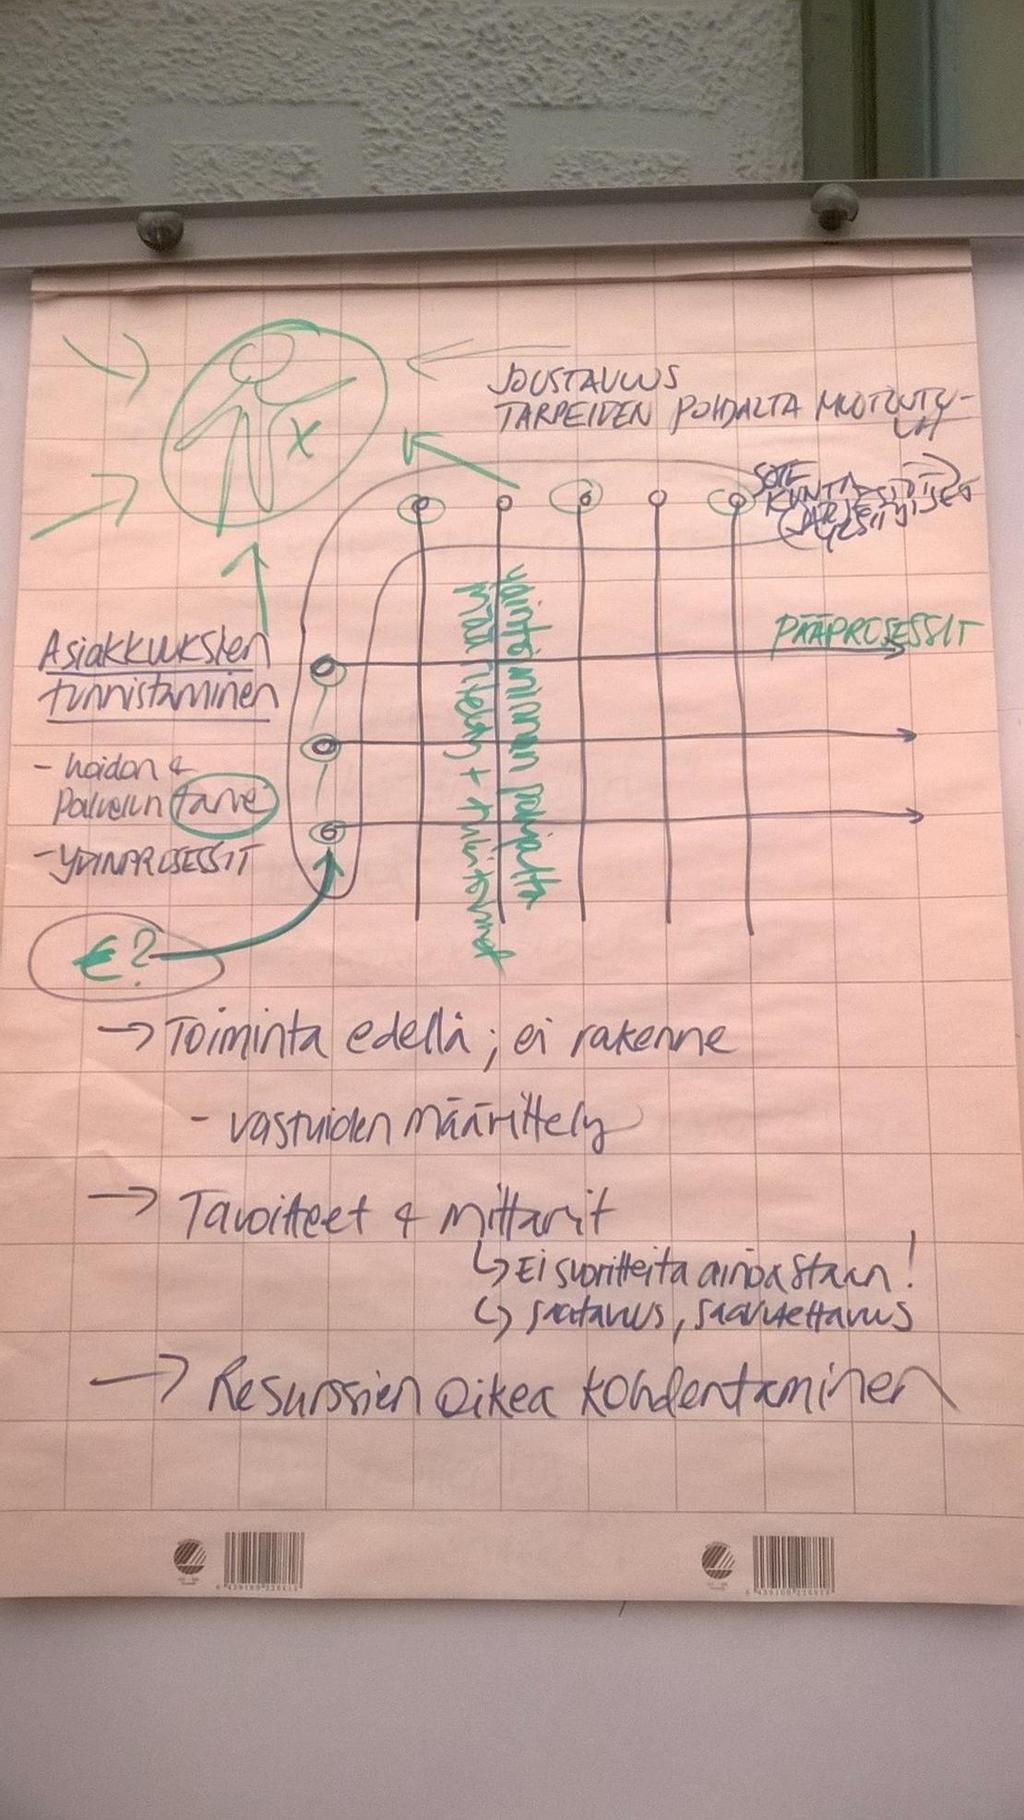 JOUSTAVUUS
TARPEIDEN POHJALTA MUOTOUTU-
VA
X
SOTE
KUNTA
JÄRJESTÖT
YKSITYISET
PÄÄPROSESSIT
Asiakkuuksien
tunnistaminen
- hoidon &
palvelun tarve
- YDINPROSESSIT
€?
määrittely + tunnistaminen
→ Toiminta edellä ; ei rakenne
- vastuiden määrittely
→ Tavoitteet & mittarit
↳ Ei suoritteita ainoastaan!
↳ saatavuus, saavutettavuus
→ Resurssien oikea kohdentaminen